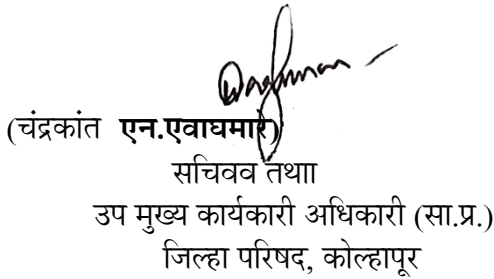 (चंद्रकांत एन.एवाघमारे)
सचिवव तथाा
उप मुख्य कार्यकारी अधिकारी (सा.प्र.)
जिल्हा परिषद, कोल्हापूर